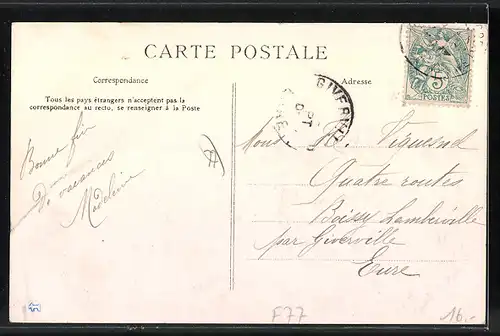 CARTE POSTALE
Correspondance
Adresse
Tous les pays étrangers n'acceptent pas la
correspondance au recto, se renseigner à la Poste
Bonne fin
De vacances
Madeleine
GIVERVILLE
EURE
5
POSTES
Mons
Quatre routes
Boissy Lamberville
par Giverville
Eure
F77
16.-